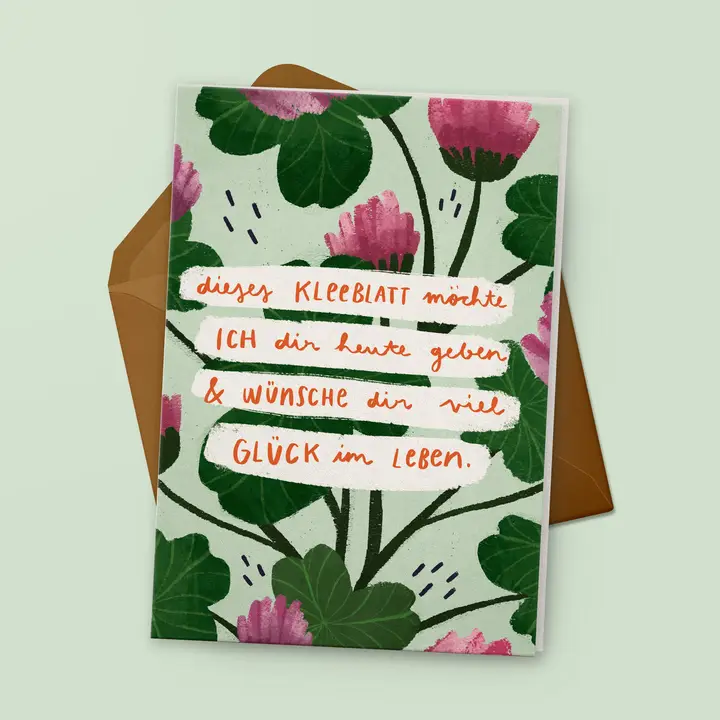 dieses KLEEBLATT möchte
ICH dir heute geben
& WÜNSCHE dir viel
GLÜCK im LEBEN.